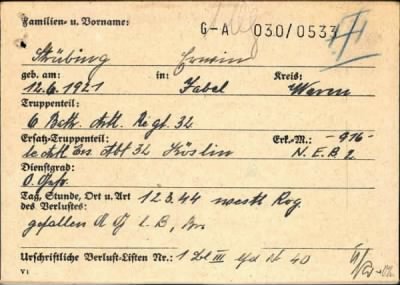 Familien- u. Vorname:
G-A 030/0533
Strübing Erwin
geb. am: in: Kreis:
12.6.1921 Jabel Waren
Truppenteil:
6 Battr. Art. Rgt. 32
Ersatz-Truppenteil: Erk.-M.: -916-
le Art Ers. Abt 32 Köslin N.E.B 2
Dienstgrad:
O. Gefr.
Tag, Stunde, Ort u. Art 12.3.44 westl Rog
des Verlustes:
gefallen A G L. B,
Urschriftliche Verlust-Listen Nr.: 1 Bl III lfd Nr 40
V1